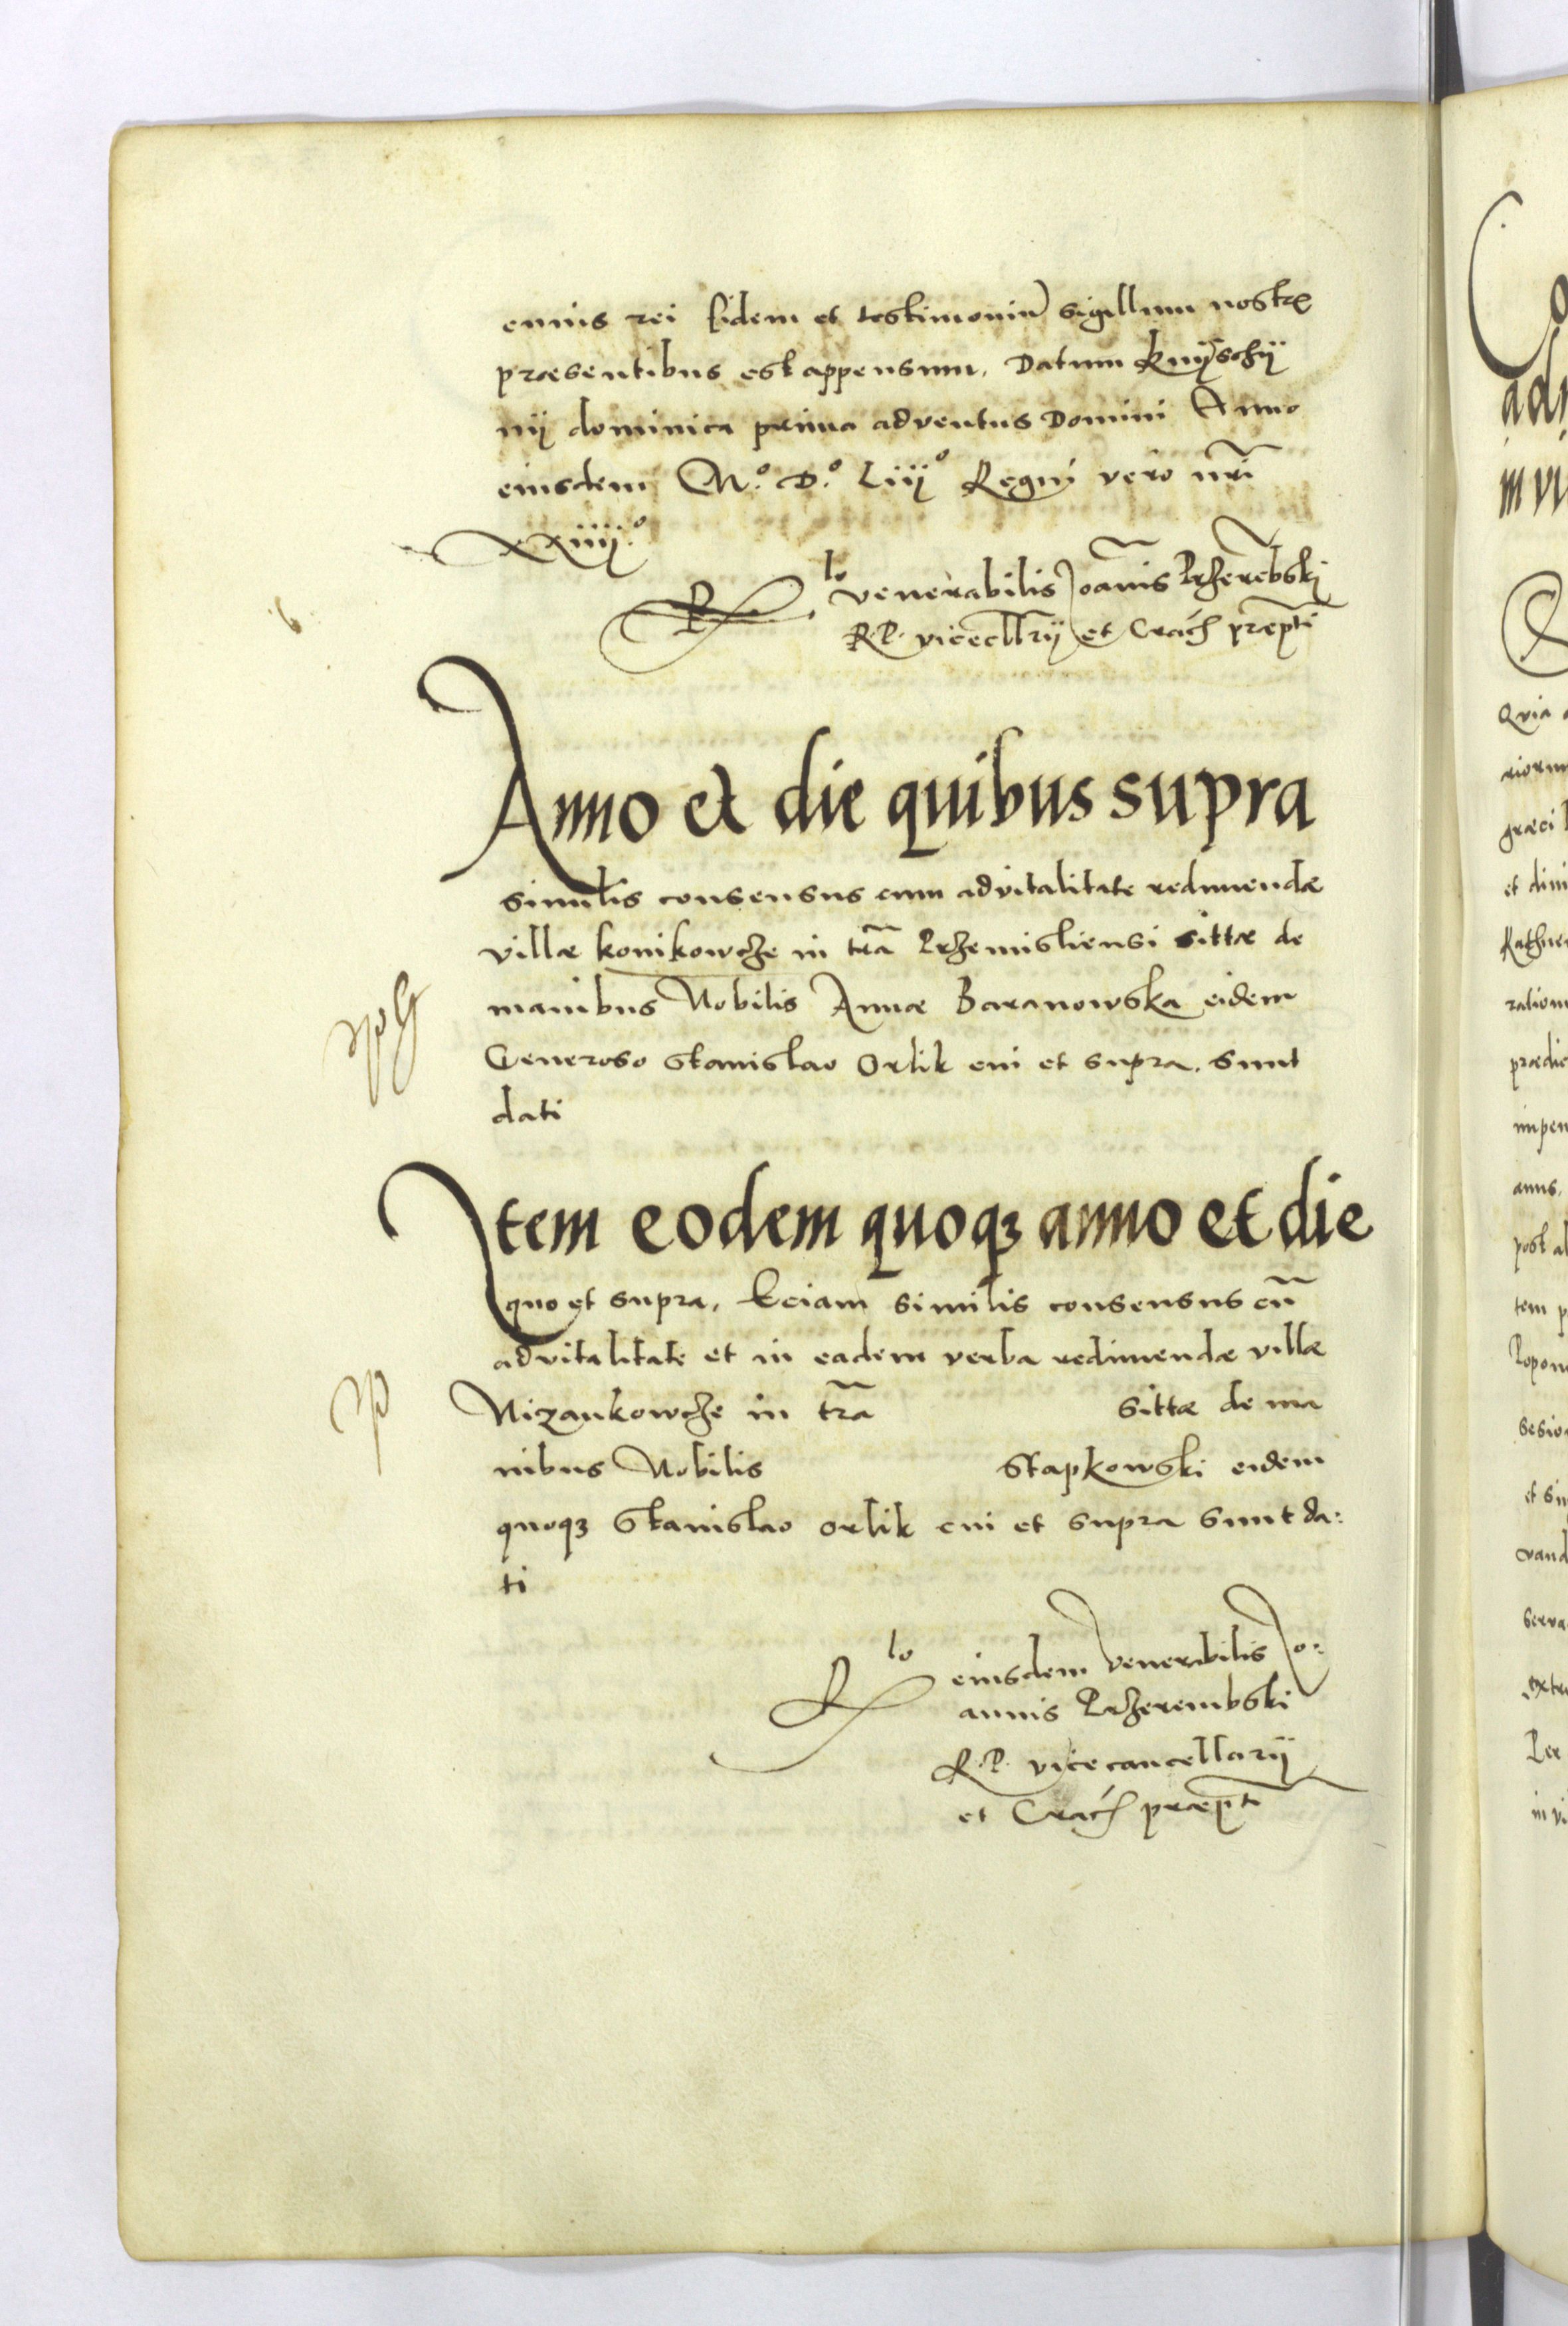 cuius rei fidem et testimoniū sigillum nostrū
præsentibus est appensum. Datum Knÿschÿ
nÿ dominica prima adventus Domini Anno
eiusdem M.º D.º Liijº Regni vero nr̃i
xxiiij.º
Rlo venerabilis Joãnis Przerẽbski
R. P. vicecllrij et Crac̃ præpti
Anno et die quibus supra
similis consensus cum advitalitate redimendæ
villæ konikowcze in tr̃a Przemisliensi sittæ de
manibus Nobilis Annæ Baranowska eidem
Generoso Stanislao Orlik cui et supra. sunt
dati
Item eodem quoqꝫ anno et die
quo et supra. Eciam similis consensus cũ
advitalitate et in eadem verba redimendæ villæ
Nizankowcze in tr̃a sittæ de ma
nibus Nobilis Stapkowski eidem
quoqꝫ Stanislao orlik cui et supra sunt da:
ti
Rlo eiusdem venerabilis Jo:
annis Przerembski
R. P. vicecancellarij
et Crac̃ præpti